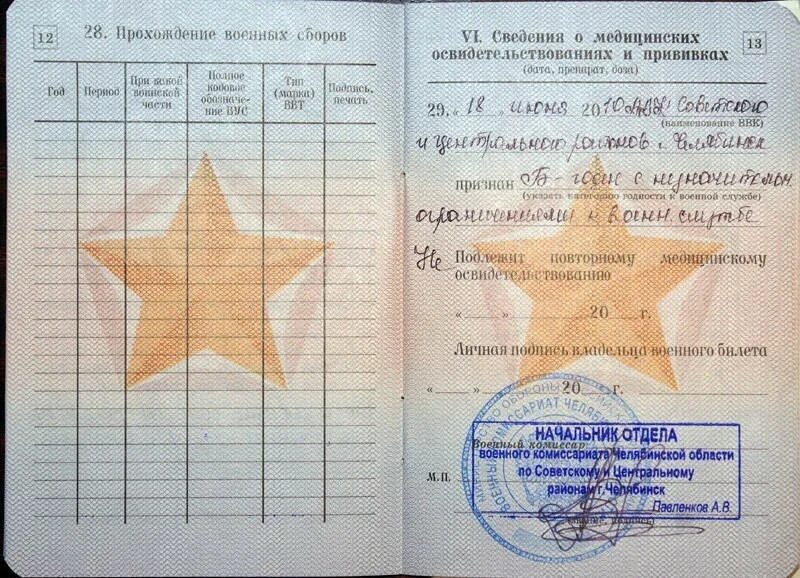 12
28. Прохождение военных сборов
Год
Период
При какой воинской части
Полное кодовое обозначе-ние ВУС
Тип (марка) ВВТ
Подпись, печать
VI. Сведения о медицинских
освидетельствованиях и прививках
13
(дата, препарат, доза)
29. „ 18 „ июня 2010 Советского
(наименование ВВК)
и Центрального районов г. Челябинск
признан Б - годен с незначительн.
(указать категорию годности к военной службе)
ограничениями к воен. службе
Не Подлежит повторному медицинскому
освидетельствованию
„ „ 20 г.
Личная подпись владельца военного билета
„ „ 20 г.
Военный комиссар
НАЧАЛЬНИК ОТДЕЛА
военного комиссариата Челябинской области
по Советскому и Центральному
районам г.Челябинск
М.П.
Павленков А.В.